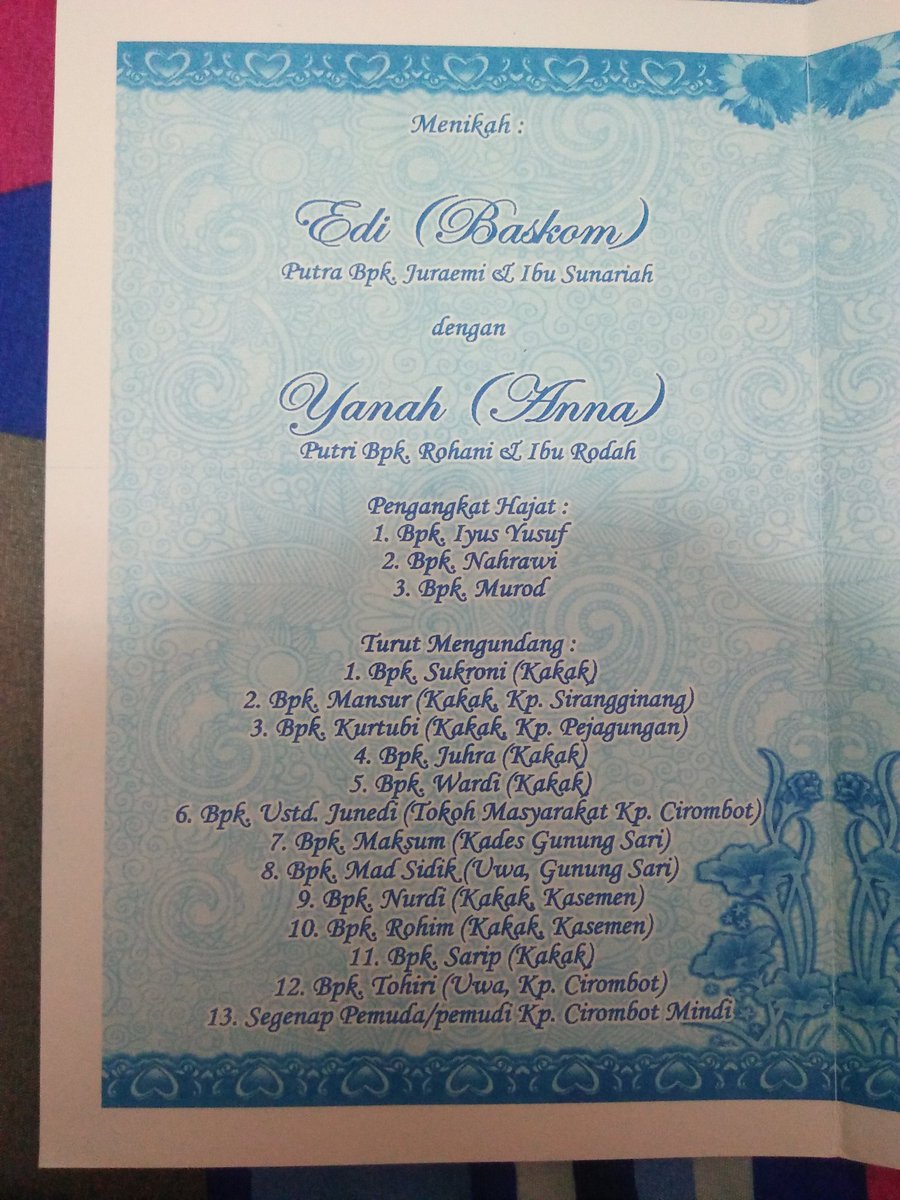 Menikah :
Edi (Baskom)
Putra Bpk. Juraemi & Ibu Sunariah
dengan
Yanah (Anna)
Putri Bpk. Rohani & Ibu Rodah
Pengangkat Hajat :
1. Bpk. Iyus Yusuf
2. Bpk. Nahrawi
3. Bpk. Murod
Turut Mengundang :
1. Bpk. Sukroni (Kakak)
2. Bpk. Mansur (Kakak, Kp. Sirangginang)
3. Bpk. Kurtubi (Kakak, Kp. Pejagungan)
4. Bpk. Juhra (Kakak)
5. Bpk. Wardi (Kakak)
6. Bpk. Ustd. Junedi (Tokoh Masyarakat Kp. Cirombot)
7. Bpk. Maksum (Kades Gunung Sari)
8. Bpk. Mad Sidik (Uwa, Gunung Sari)
9. Bpk. Nurdi (Kakak, Kasemen)
10. Bpk. Rohim (Kakak, Kasemen)
11. Bpk. Sarip (Kakak)
12. Bpk. Tohiri (Uwa, Kp. Cirombot)
13. Segenap Pemuda/pemudi Kp. Cirombot Mindi